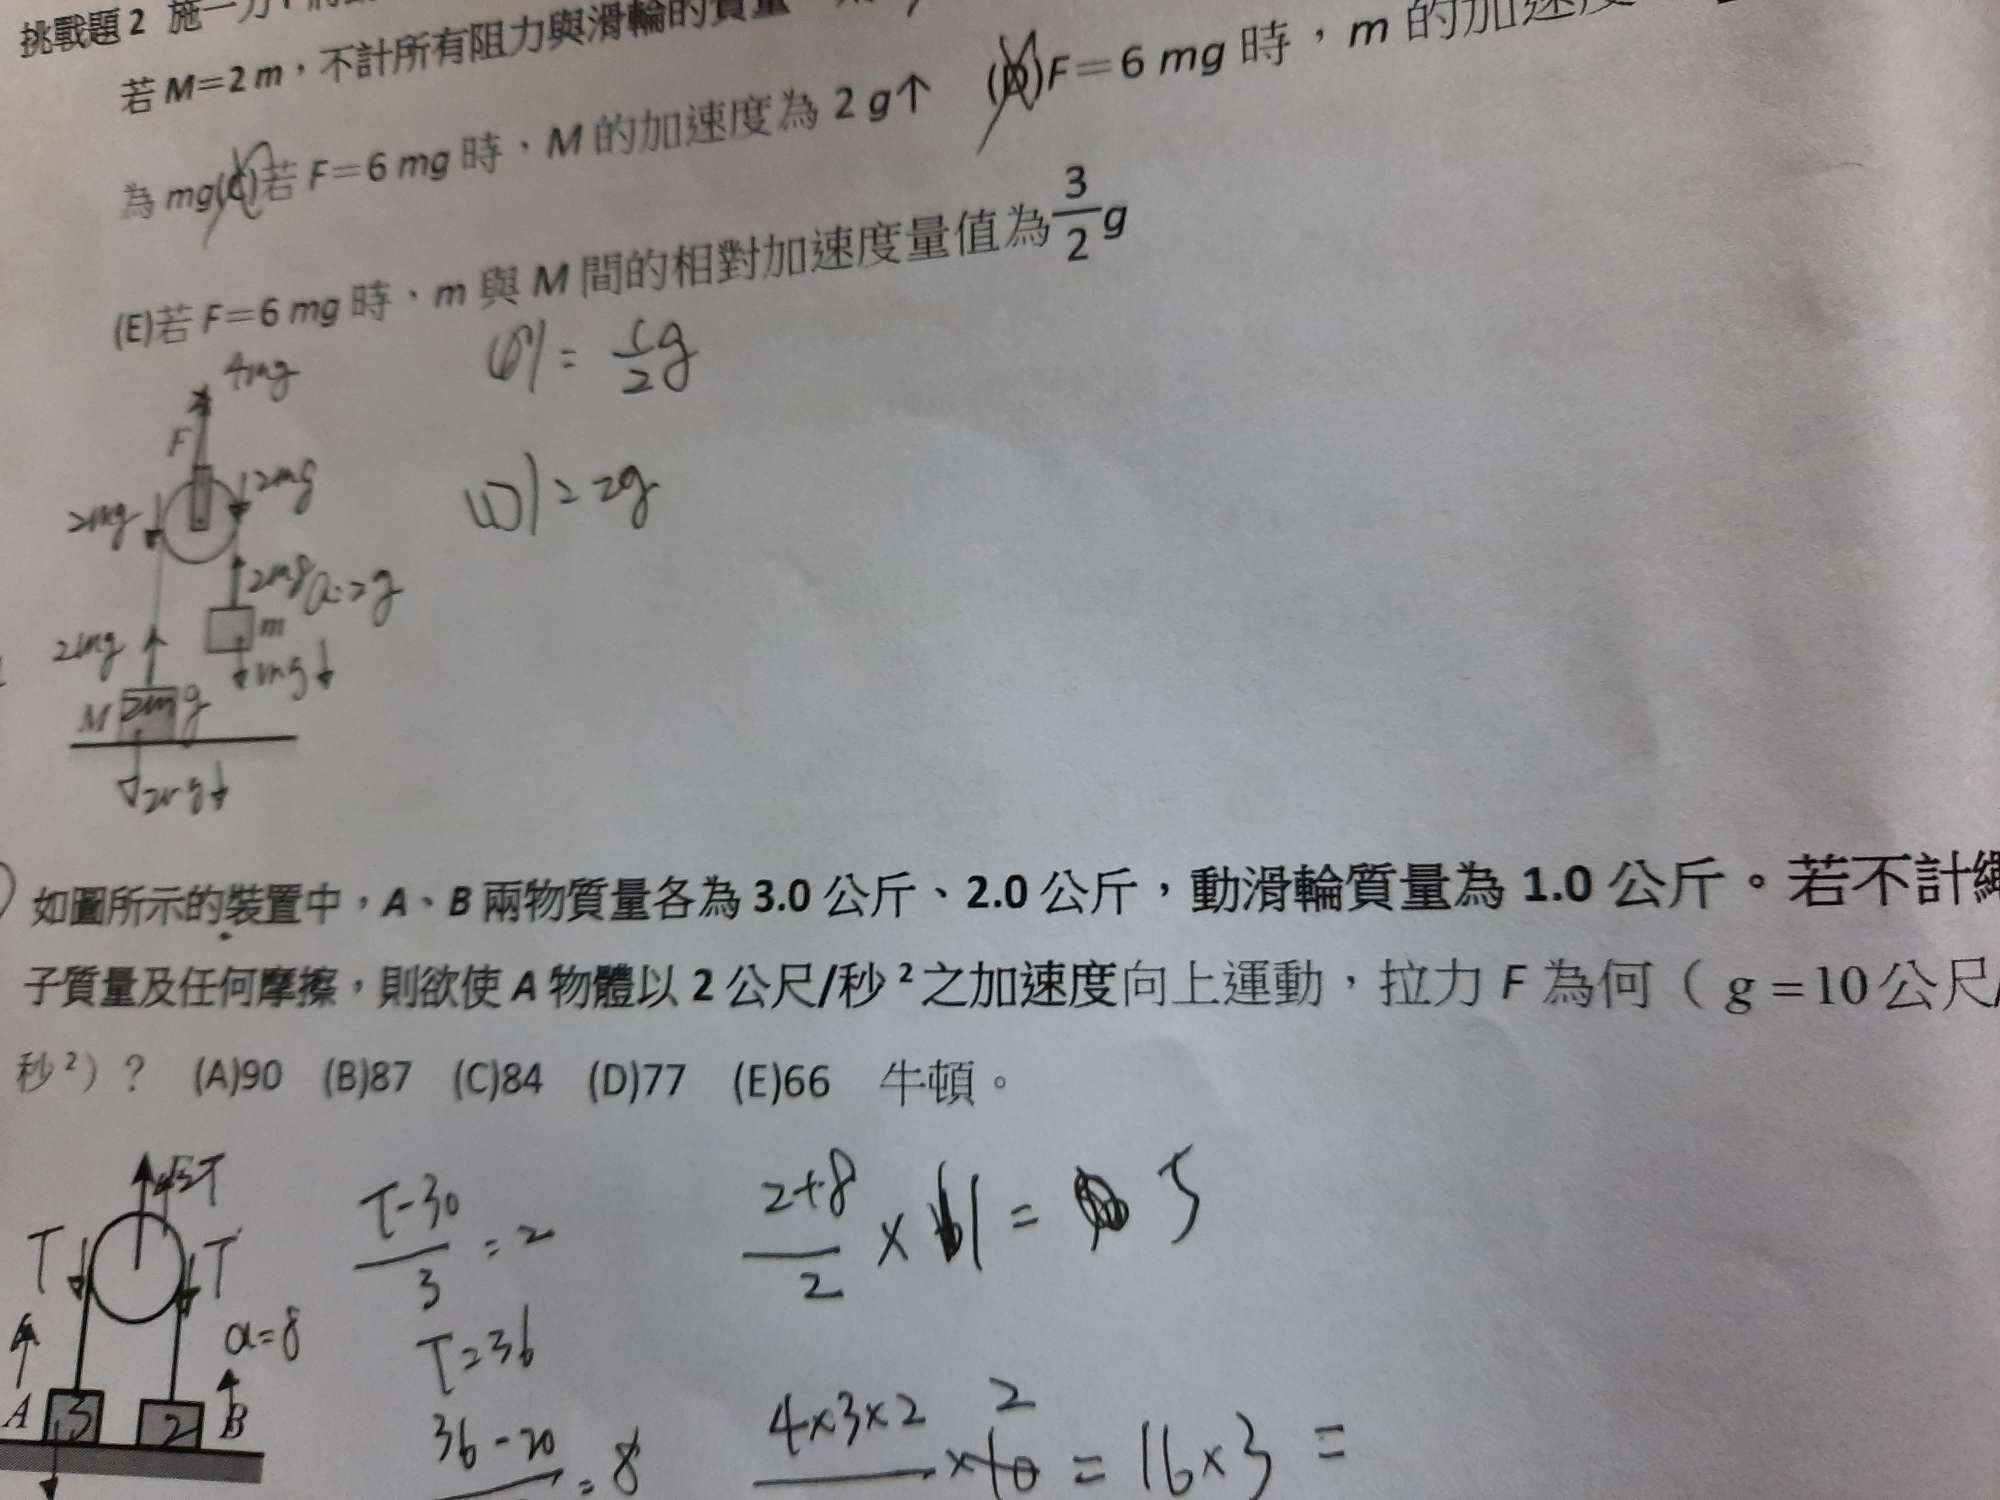 挑戰題2 施一力
若 M=2 m，不計所有阻力與滑輪的質量
為 mg(C)若 F=6 mg 時，M 的加速度為 2 g↑ (D)F=6 mg 時，m 的加速度
(E)若 F=6 mg 時、m 與 M 間的相對加速度量值為 3/2 g
4mg
F
2mg
2mg
2mg a=2g
m
mg↓
2mg
M 2mg
= 1/2 g
= 2g
如圖所示的裝置中，A、B 兩物質量各為 3.0 公斤、2.0 公斤，動滑輪質量為 1.0 公斤。若不計繩
子質量及任何摩擦，則欲使 A 物體以 2 公尺/秒²之加速度向上運動，拉力 F 為何（ g =10公尺/
秒²）？ (A)90 (B)87 (C)84 (D)77 (E)66 牛頓。
T
T
a=8
A 3
2 B
T-30 / 3 = 2
T=36
36-20 = 8
2+8 / 2 × 1 = 5
4×3×2 × 10 2 = 16×3 =